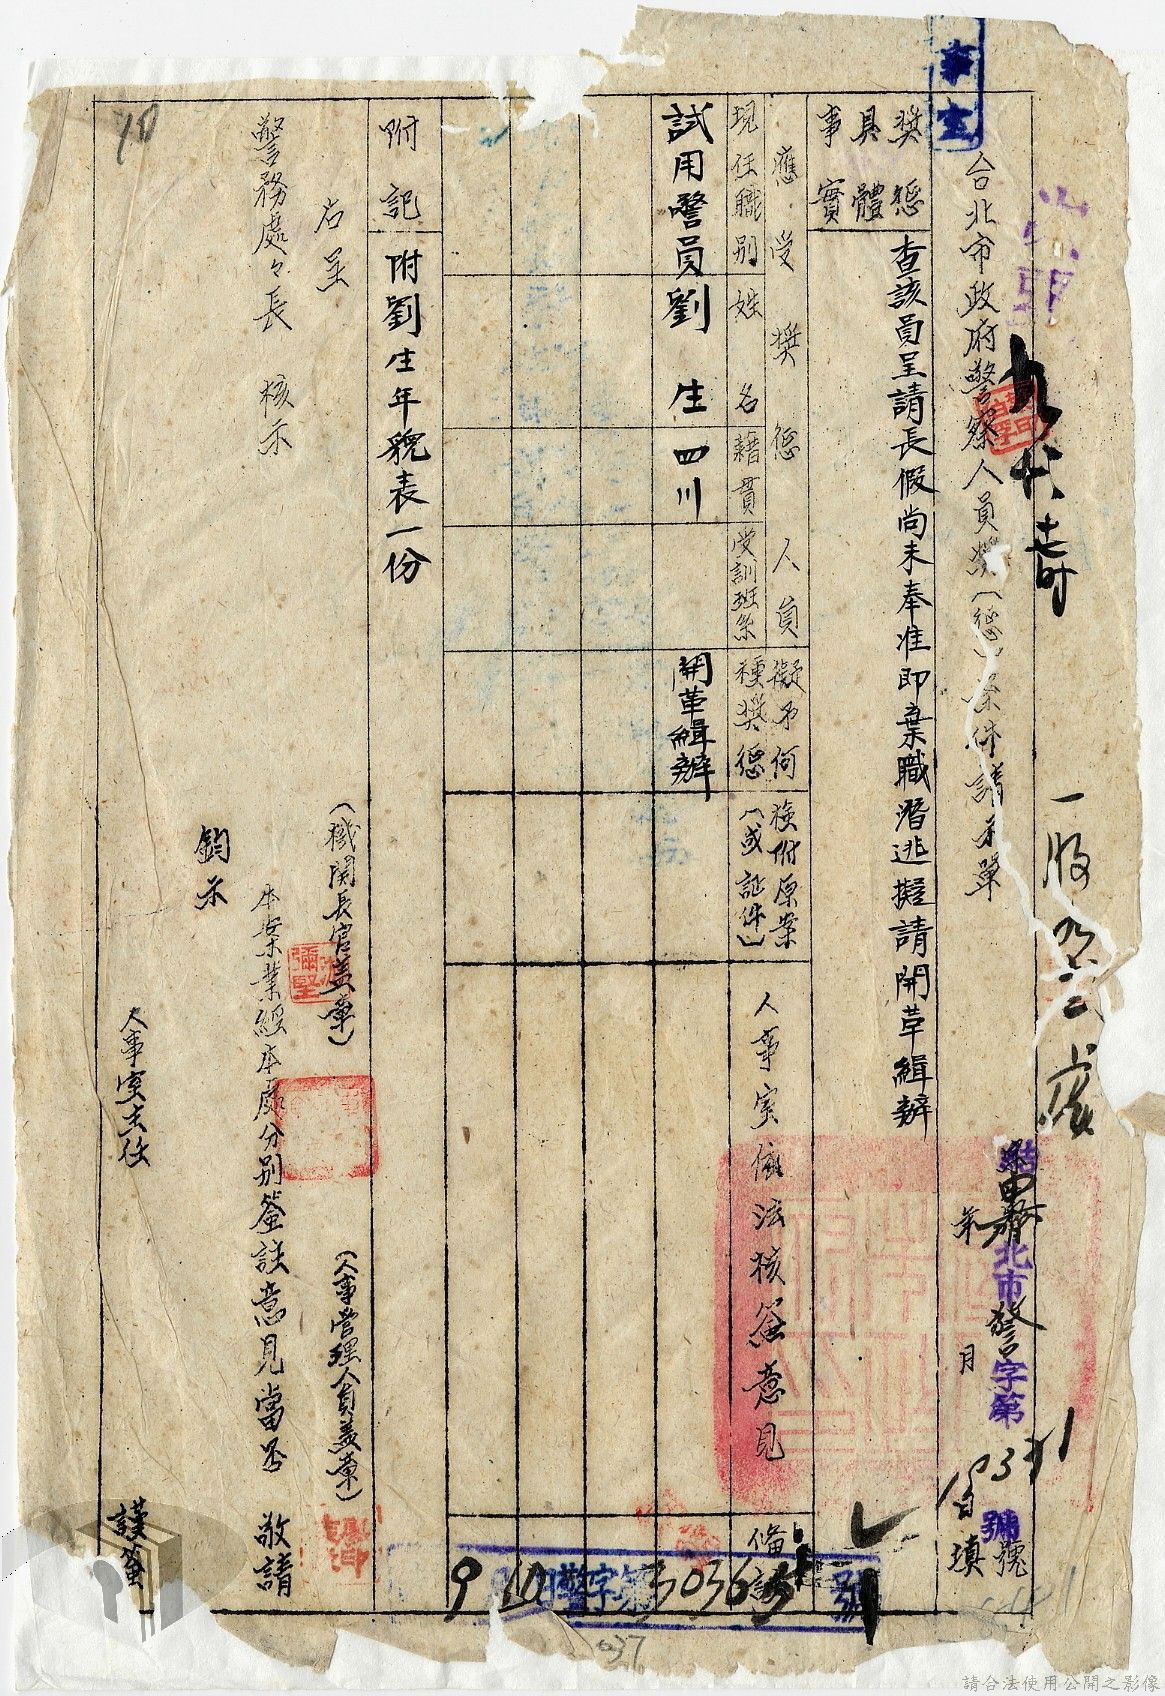 台北市政府警察人員獎(懲)案件請示單
年
月
日填
北市警字第
號
獎懲具體事實
查該員呈請長假尚未奉准即棄職潛逃擬請開革緝辦
應受獎懲人員
擬予何種獎懲
檢附原案(或証件)
人事室依法核簽意見
備註
現任職別
姓名
籍貫
受訓班系
試用警員
劉生
四川
開革緝辦
附記
附劉生年貌表一份
右呈
警務處處長 核示
(機關長官蓋章)
(人事管理人員蓋章)
本案業經本處分別簽註意見當否 敬請
鈞示
人事室主任
謹簽
警字第30363號
037
請合法使用公開之影像